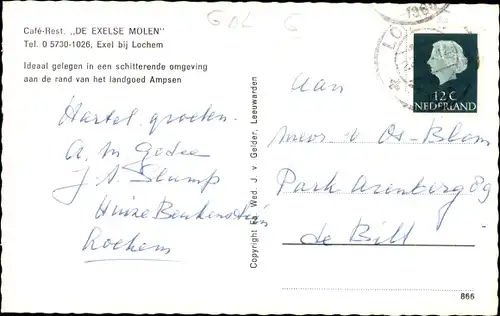 GOL G
1969
LO
Café-Rest. „DE EXELSE MOLEN"
Tel. 0 5730-1026, Exel bij Lochem
Ideaal gelegen in een schitterende omgeving
aan de rand van het landgoed Ampsen
Hartel. groeten.
A. M
J. A. Slump
Huize Beukenstein
Lochem
Copyright Fa. Wed. J. v. Gelder, Leeuwarden
12 C
NEDERLAND
Aan
Mevr. v Os-Blom
Park Arenberg 89
de Bilt
866